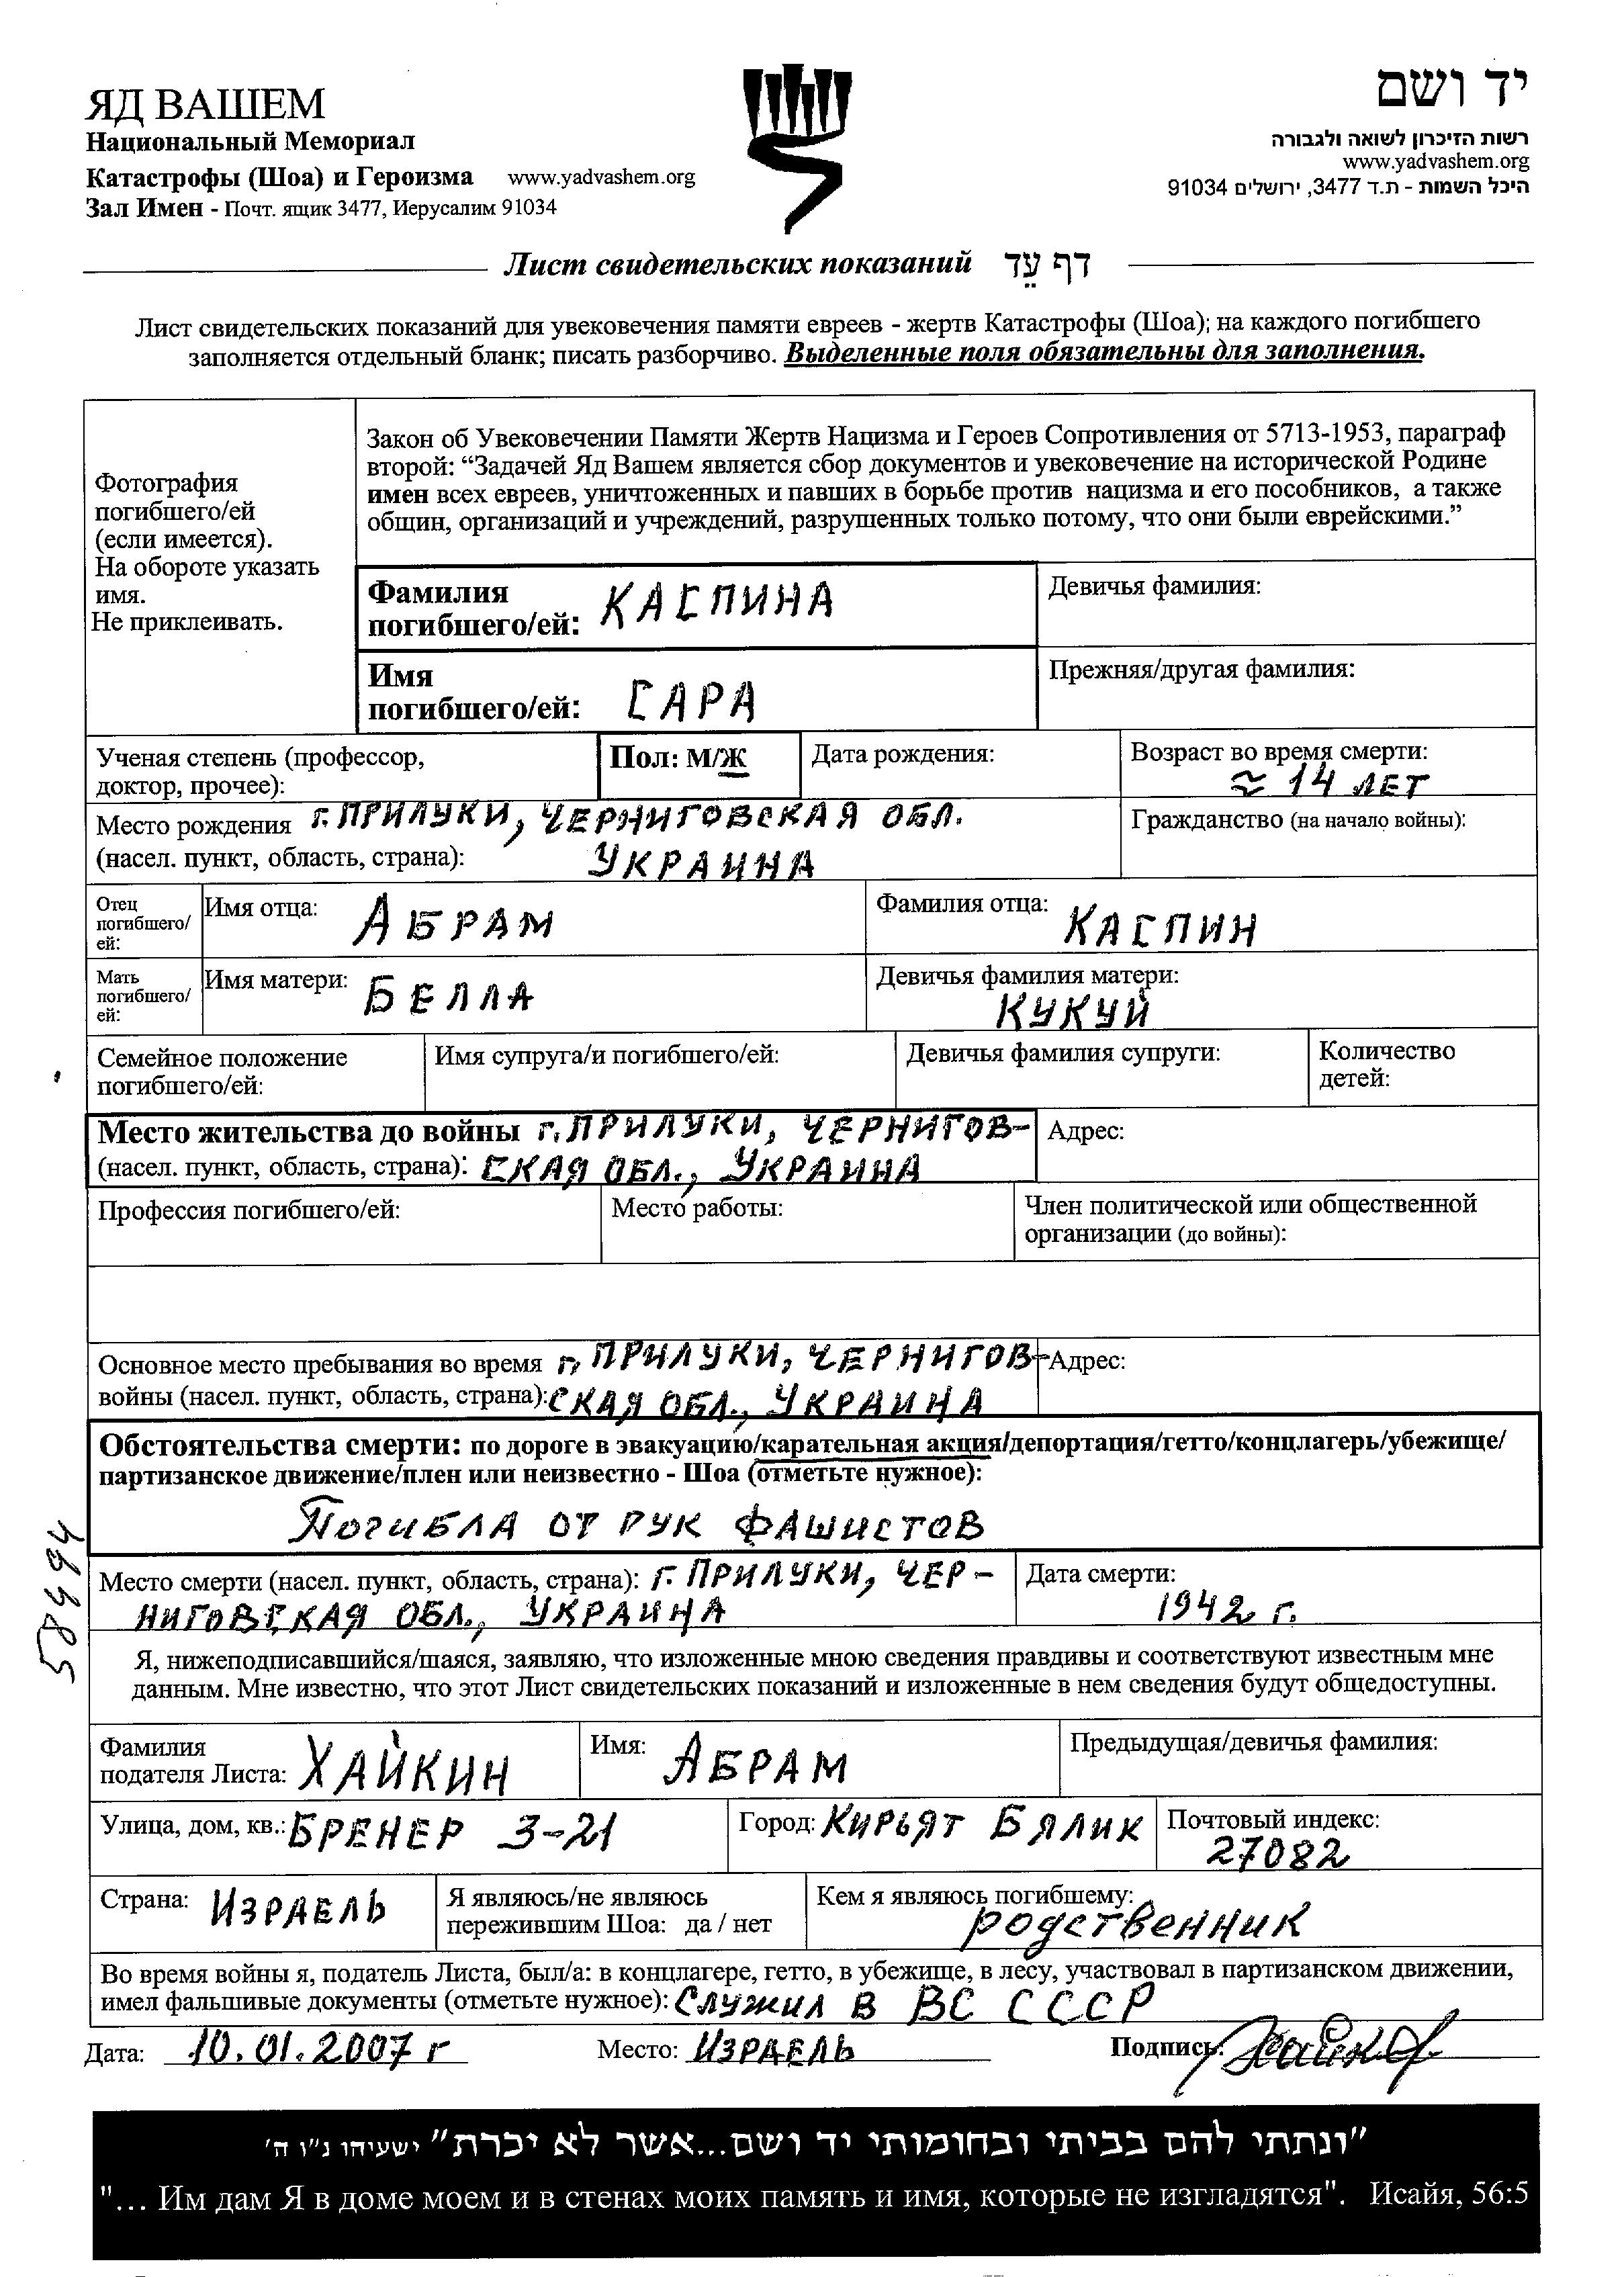 ЯД ВАШЕМ
Национальный Мемориал
Катастрофы (Шоа) и Героизма www.yadvashem.org
Зал Имен - Почт. ящик 3477, Иерусалим 91034
יד ושם
רשות הזיכרון לשואה ולגבורה
www.yadvashem.org
היכל השמות - ת.ד 3477, ירושלים 91034
Лист свидетельских показаний דף עֵד
Лист свидетельских показаний для увековечения памяти евреев - жертв Катастрофы (Шоа); на каждого погибшего
заполняется отдельный бланк; писать разборчиво. Выделенные поля обязательны для заполнения.
Фотография
погибшего/ей
(если имеется).
На обороте указать
имя.
Не приклеивать.
Закон об Увековечении Памяти Жертв Нацизма и Героев Сопротивления от 5713-1953, параграф
второй: “Задачей Яд Вашем является сбор документов и увековечение на исторической Родине
имен всех евреев, уничтоженных и павших в борьбе против нацизма и его пособников, а также
общин, организаций и учреждений, разрушенных только потому, что они были еврейскими.”
Фамилия
погибшего/ей: КАСПИНА
Девичья фамилия:
Имя
погибшего/ей: САРА
Прежняя/другая фамилия:
Ученая степень (профессор,
доктор, прочее):
Пол: М/Ж
Дата рождения:
Возраст во время смерти:
≈ 14 ЛЕТ
Место рождения г. ПРИЛУКИ, ЧЕРНИГОВСКАЯ ОБЛ.
(насел. пункт, область, страна): УКРАИНА
Гражданство (на начало войны):
Отец
погибшего/
ей:
Имя отца: АБРАМ
Фамилия отца: КАСПИН
Мать
погибшего/
ей:
Имя матери: БЕЛЛА
Девичья фамилия матери:
КУКУЙ
Семейное положение
погибшего/ей:
Имя супруга/и погибшего/ей:
Девичья фамилия супруги:
Количество
детей:
Место жительства до войны г. ПРИЛУКИ, ЧЕРНИГОВ-
(насел. пункт, область, страна): СКАЯ ОБЛ., УКРАИНА
Адрес:
Профессия погибшего/ей:
Место работы:
Член политической или общественной
организации (до войны):
Основное место пребывания во время г. ПРИЛУКИ, ЧЕРНИГОВ-
войны (насел. пункт, область, страна): СКАЯ ОБЛ., УКРАИНА
Адрес:
Обстоятельства смерти: по дороге в эвакуацию/карательная акция/депортация/гетто/концлагерь/убежище/
партизанское движение/плен или неизвестно - Шоа (отметьте нужное):
ПОГИБЛА ОТ РУК ФАШИСТОВ
58494
Место смерти (насел. пункт, область, страна): г. ПРИЛУКИ, ЧЕР-
НИГОВСКАЯ ОБЛ., УКРАИНА
Дата смерти:
1942 г.
Я, нижеподписавшийся/шаяся, заявляю, что изложенные мною сведения правдивы и соответствуют известным мне
данным. Мне известно, что этот Лист свидетельских показаний и изложенные в нем сведения будут общедоступны.
Фамилия
подателя Листа: ХАЙКИН
Имя: АБРАМ
Предыдущая/девичья фамилия:
Улица, дом, кв.: БРЕНЕР 3-21
Город: КИРЬЯТ БЯЛИК
Почтовый индекс:
27082
Страна: ИЗРАЕЛЬ
Я являюсь/не являюсь
пережившим Шоа: да / нет
Кем я являюсь погибшему:
родственник
Во время войны я, податель Листа, был/а: в концлагере, гетто, в убежище, в лесу, участвовал в партизанском движении,
имел фальшивые документы (отметьте нужное): СЛУЖИЛ В ВС СССР
Дата: 10.01.2007 г Место: ИЗРАЕЛЬ Подпись:
"ונתתי להם בביתי ובחומותי יד ושם...אשר לא יכרת" ישעיהו נ"ו ה'
"... Им дам Я в доме моем и в стенах моих память и имя, которые не изгладятся". Исайя, 56:5